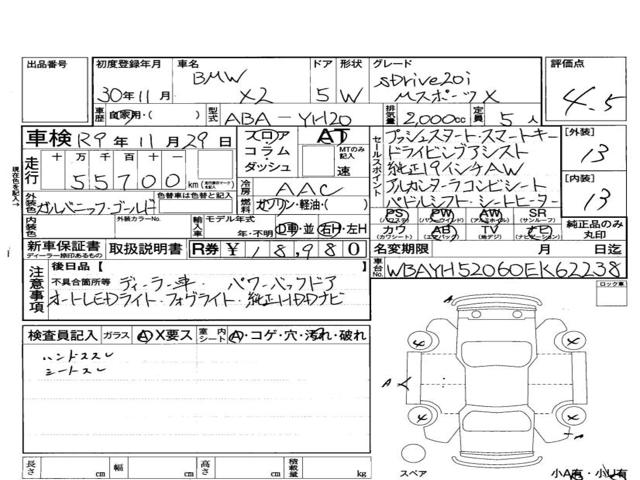 出品番号 初度登録年月 車名 ドア 形状 グレード 評価点
BMW sDrive20i
30年11月 X2 5 W MスポーツX 4.5
車歴 自家用・( ) 型式 ABA-YH20 排気量 2,000cc 定員 5人
車検 R9年11月29日 フロア AT
コラム MTのみ記入
ダッシュ 速
走行 十万 万 千 百 十 一
55700 km
現在色を記入→
冷房 AAC
外装色 ガルバニックゴールド 色替車は色替と記入 燃料 ガソリン・軽油・( )
内装色 外装カラーNo. 輸入車 モデル年式
年・不明 D車・並 右H・左H
新車保証書 取扱説明書 R券 ¥18,980
ディーラー捺印あるもの
セールスポイント
プッシュスタート・スマートキー
ドライビングアシスト
純正19インチAW
アルカンターラコンビシート
パドルシフト・シートヒーター
[外装]
13
[内装]
13
PS PW AW SR
(パワステ) (パワーウインド) (アルミホイル) (サンルーフ)
カワ AB TV ナビ
(カワシート) (エアバック) (テレビ) (ナビゲーション)
純正品のみ丸印
名変期限 月 日迄
車台No. WBAYH52060EK62238
注意事項 後日品【 】
不具合箇所等 ディーラー車・パワーバックドア
オートLEDライト・フォグライト・純正HDDナビ
ロック車
検査員記入 ガラス A X要ス 室内シート A・コゲ・穴・汚れ・破れ
ハンドルスレ
シートスレ
A
4 4
A
4 4
スペア
長さ cm 幅 cm 高さ cm 積載量 kg
小A有・小U有